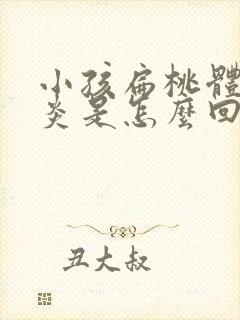 小孩扁桃體
炎是怎麼回
丑大叔